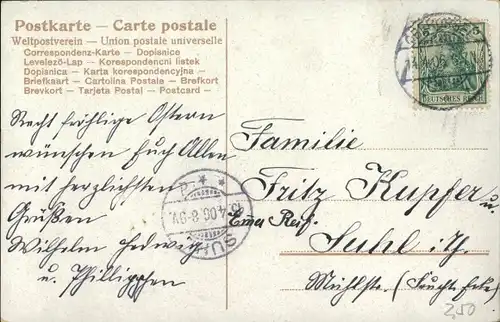 Postkarte — Carte postale
Weltpostverein — Union postale universelle
Correspondenz-Karte — Dopisnice
Levelező-Lap — Korespondencni listek
Dopisnica — Karta korespondencyjna —
Briefkaart — Cartolina Postale — Brefkort
Brevkort — Tarjeta Postal — Postcard —
DEUTSCHES REICH
Recht fröhliche Ostern
wünschen Euch Allen
mit herzlichsten
Grüßen
Wilhelm Hedwig
u. Philippchen
SUHL
4.06.8-9V.
Familie
Fritz Kupfer u
Erna Reif.
Suhl i/Th.
Mühlstr. (Frucht Ecke)
2,50